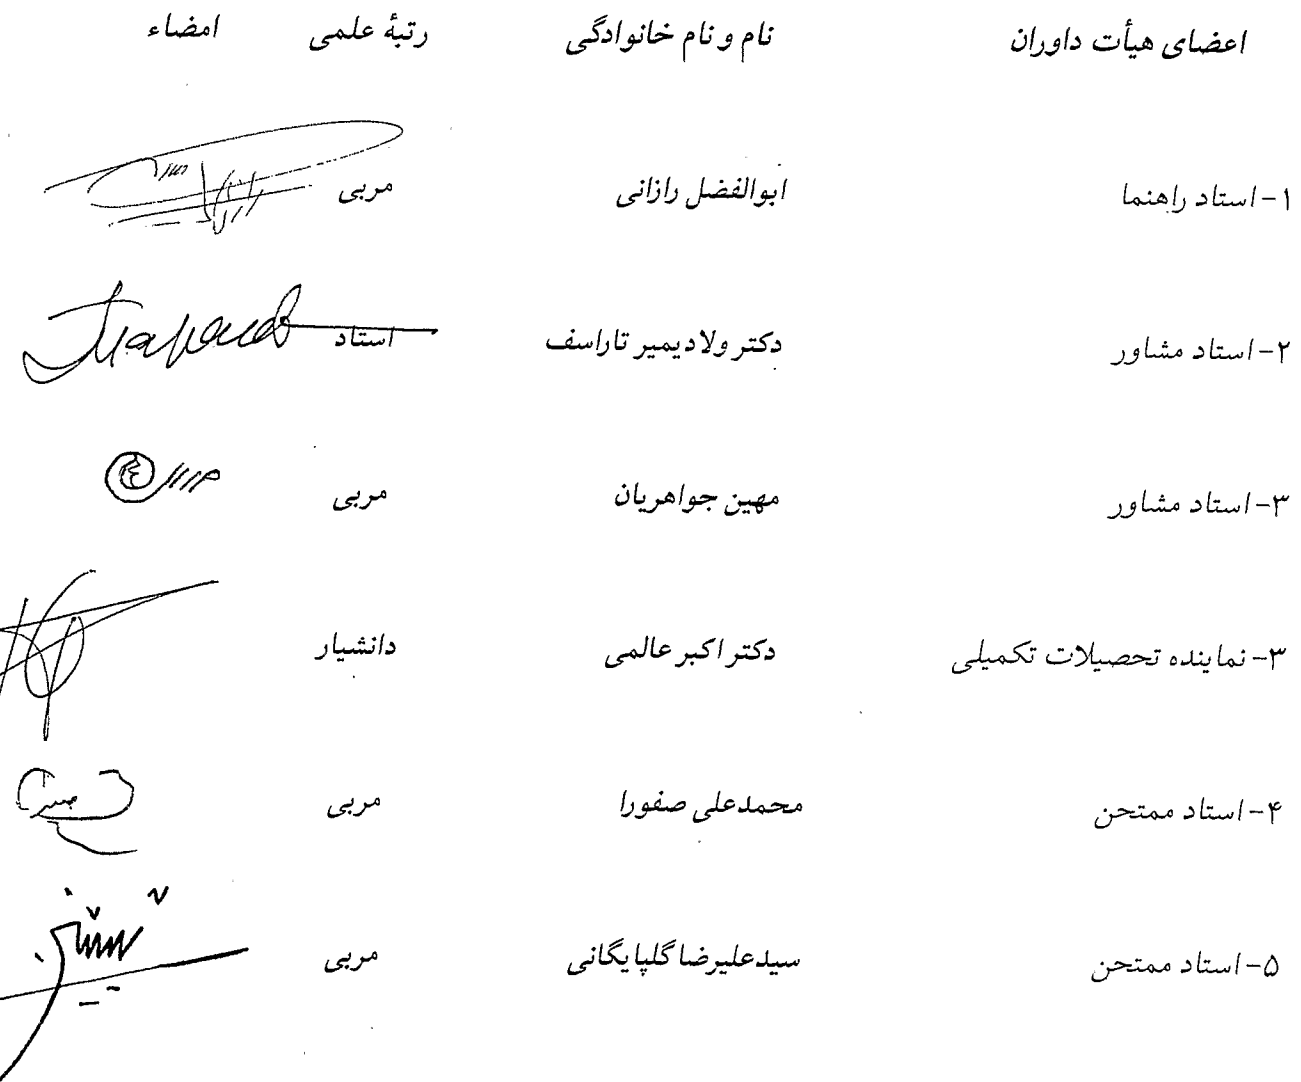 اعضای هیأت داوران نام و نام خانوادگی رتبۀ علمی امضاء
۱- استاد راهنما ابوالفضل رازانی مربی
۲- استاد مشاور دکتر ولادیمیر تاراسف استاد
۳- استاد مشاور مهین جواهریان مربی
۳- نماینده تحصیلات تکمیلی دکتر اکبر عالمی دانشیار
۴- استاد ممتحن محمدعلی صفورا مربی
۵- استاد ممتحن سیدعلیرضا گلپایگانی مربی